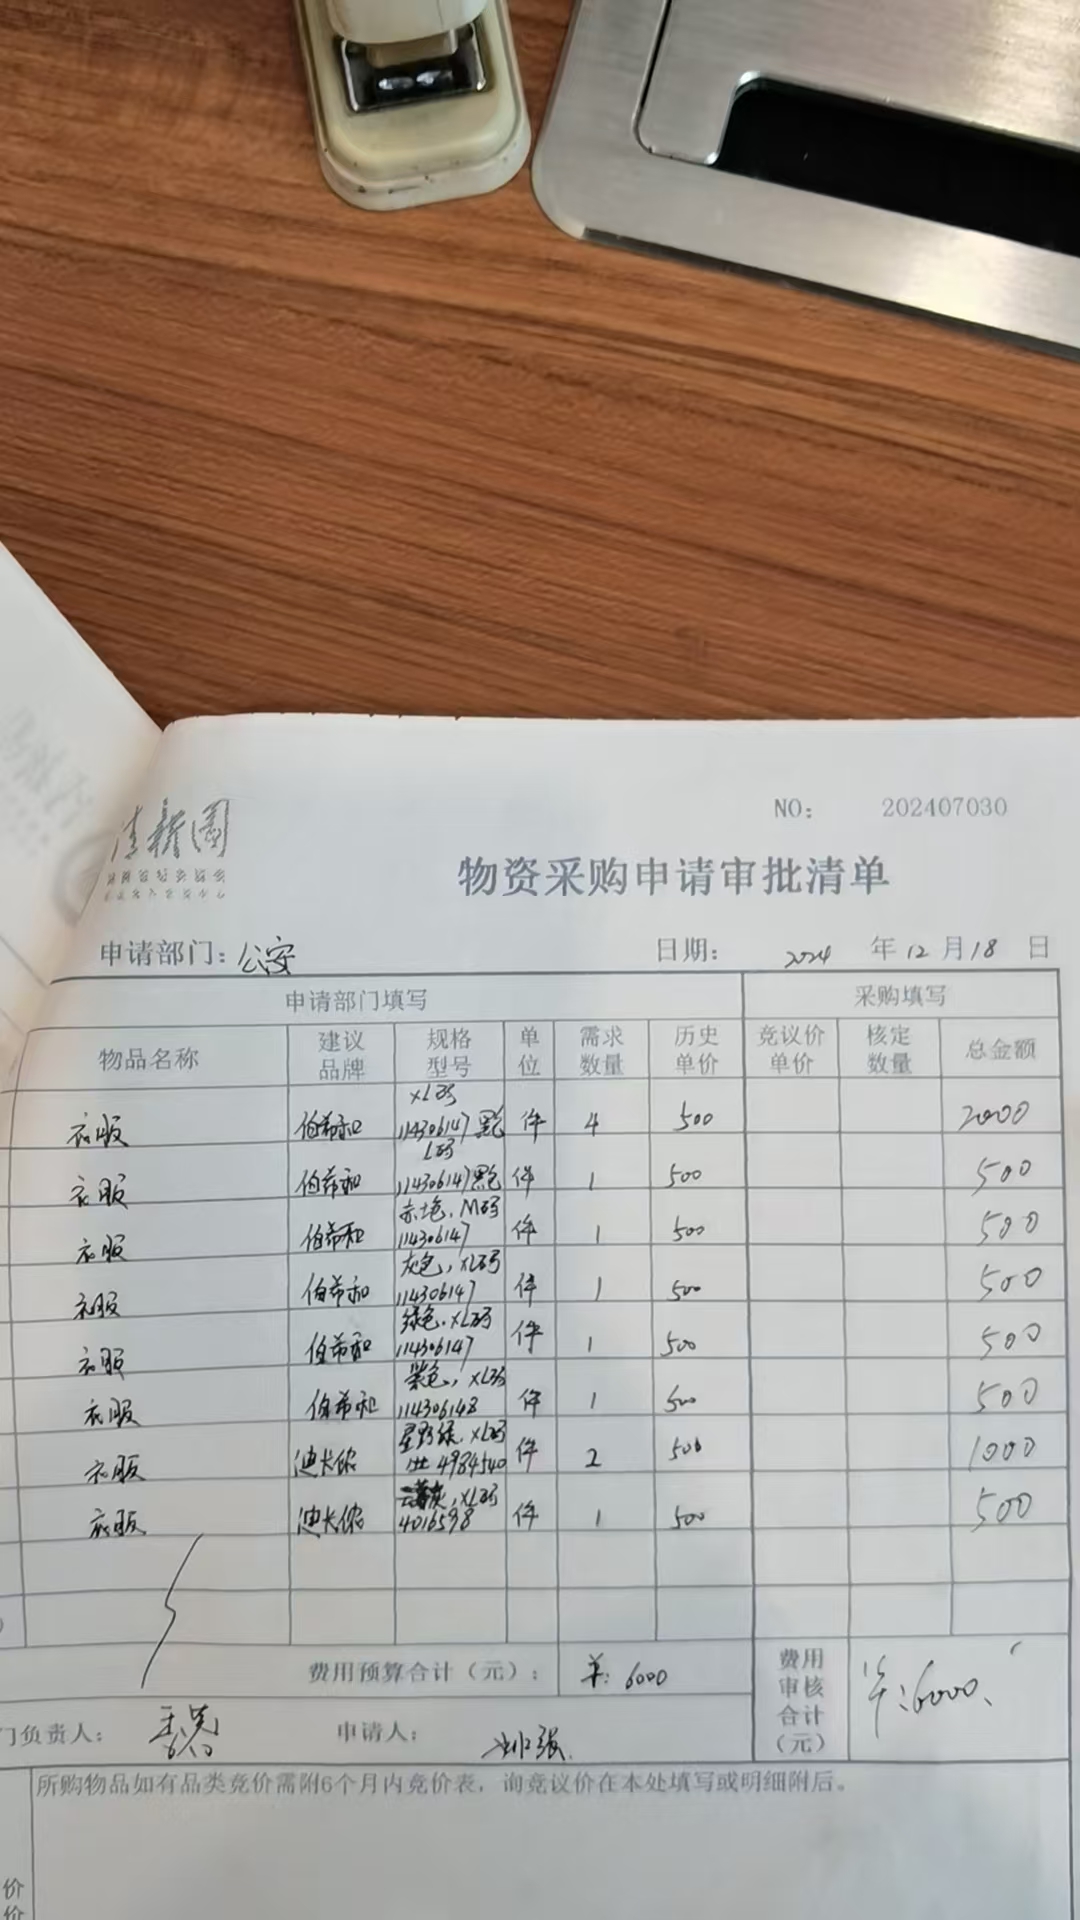 清新园
NO: 202407030
物资采购申请审批清单
申请部门: 公安 日期: 2024 年 12 月 18 日
申请部门填写 采购填写
物品名称 建议品牌 规格型号 单位 需求数量 历史单价 竞议价单价 核定数量 总金额
衣服 伯希和 XL码 114306147 黑色 件 4 500 2000
衣服 伯希和 L码 114306147 黑色 件 1 500 500
衣服 伯希和 M码 114306147 件 1 500 500
衣服 伯希和 灰色, XL码 114306147 件 1 500 500
衣服 伯希和 绿色, XL码 114306147 件 1 500 500
衣服 伯希和 紫色, XL码 114306148 件 1 500 500
衣服 迪卡侬 星野绿, XL码 4984540 件 2 500 1000
衣服 迪卡侬 XL码 4016598 件 1 500 500
费用预算合计(元): ¥: 6000 费用审核合计(元) ¥: 6000
门负责人: 申请人:
所购物品如有品类竞价需附6个月内竞价表, 询竞议价在本处填写或明细附后。
价
价